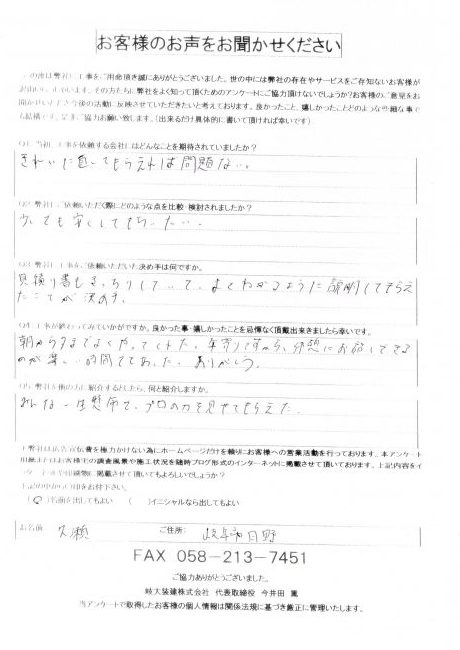 お客様のお声をお聞かせください
工事をご用命頂き誠にありがとうございました。世の中には弊社の存在やサービスをご存知ないお客様が
弊社をよく知って頂くためのアンケートにご協力頂けないでしょうか?お客様のご意見をお
今後の活動に反映させていただきたいと考えております。良かったこと、嬉しかったことどのような些細な事で
も結構です。是非ご協力お願い致します。(出来るだけ具体的に書いて頂ければ幸いです)
Q1 当初、工事を依頼する会社にはどんなことを期待されていましたか?
きれいに直ってもらえれば問題ない。
Q2 弊社にご依頼いただく際にどのような点を比較・検討されましたか?
少しでも安くしてもらいたい。
Q3 弊社に工事をご依頼いただいた決め手は何ですか。
見積り書もきっちりしていて、よくわかるように説明してもらえ
たことが決め手。
Q4 工事が終わってみていかがですか。良かった事・嬉しかったことを忌憚なく頂戴出来きましたら幸いです。
朝から夕までよくやってくれた。年寄りですから、休憩にお話しできる
のが楽しい時間でであった。ありがとう。
Q5 弊社を他の方に紹介するとしたら、何と紹介しますか。
みんな一生懸命で、プロの力を見せてもらえた。
弊社は広告宣伝費を極力かけない為にホームページだけを頼りにお客様への営業活動を行っております。本アンケート
用紙またはお客様宅の調査風景や施工状況を随時ブログ形式のインターネットに掲載させて頂いております。上記内容をイ
に掲載させて頂いてもよろしいでしょうか?
上記の中から○印をお付下さい。
(○)名前を出してもよい ( )イニシャルなら出してもよい
お名前 久瀬 ご住所: 岐阜市日野
FAX 058-213-7451
ご協力ありがとうございました。
岐大装建株式会社 代表取締役 今井田 嵩
当アンケートで取得したお客様の個人情報は関係法規に基づき厳正に管理いたします。